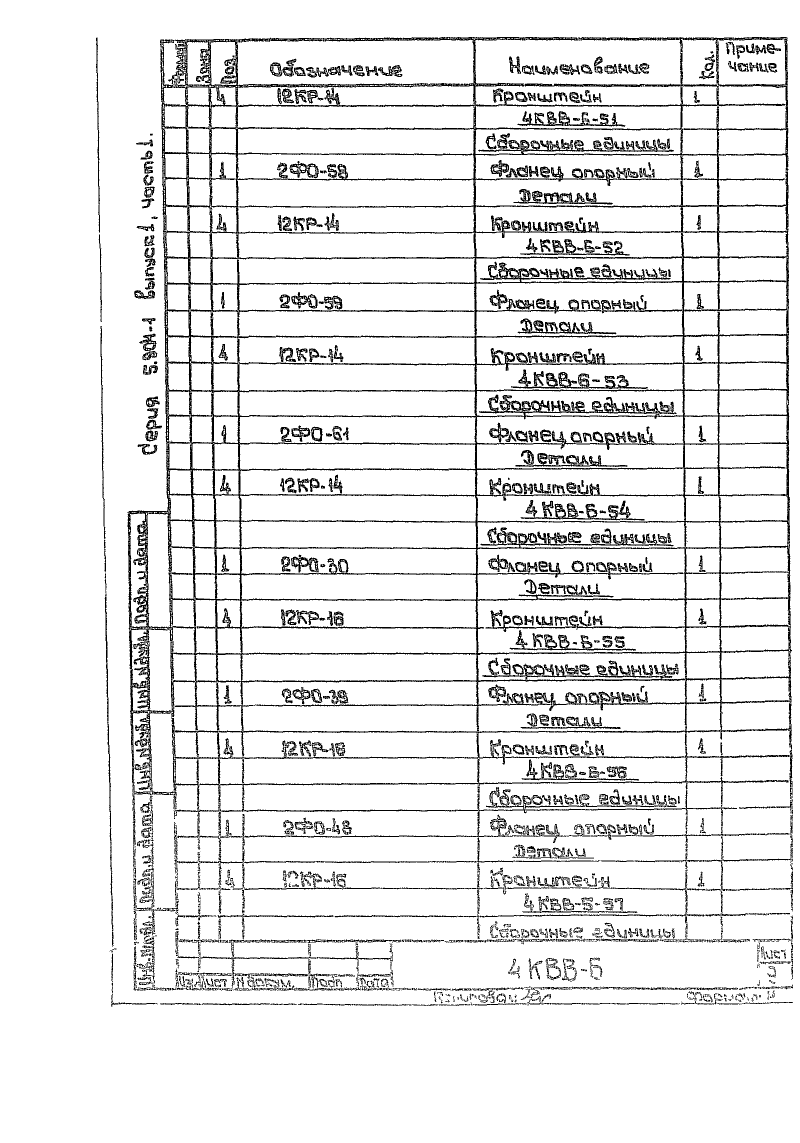 Формат Зона Поз. Обозначение Наименование Кол. Приме-
чание
4 12КР-14 Кронштейн 1
4КВВ-Б-51
Сборочные единицы
1 2ФО-58 Фланец опорный 1
Детали
4 12КР-14 Кронштейн 1
4КВВ-Б-52
Сборочные единицы
1 2ФО-59 Фланец опорный 1
Детали
4 12КР-14 Кронштейн 1
4КВВ-Б-53
Сборочные единицы
1 2ФО-61 Фланец опорный 1
Детали
4 12КР-14 Кронштейн 1
4КВВ-Б-54
Сборочные единицы
1 2ФО-30 Фланец опорный 1
Детали
4 12КР-16 Кронштейн 1
4КВВ-Б-55
Сборочные единицы
1 2ФО-39 Фланец опорный 1
Детали
4 12КР-16 Кронштейн 1
4КВВ-Б-56
Сборочные единицы
1 2ФО-48 Фланец опорный 1
Детали
4 12КР-16 Кронштейн 1
4КВВ-Б-57
Сборочные единицы
Серия 5.904-1 выпуск 1, часть 1.
Подп. и дата
4КВВ-Б
Лист
Изм. Лист N докум. Подп. Дата
Копировал
Формат